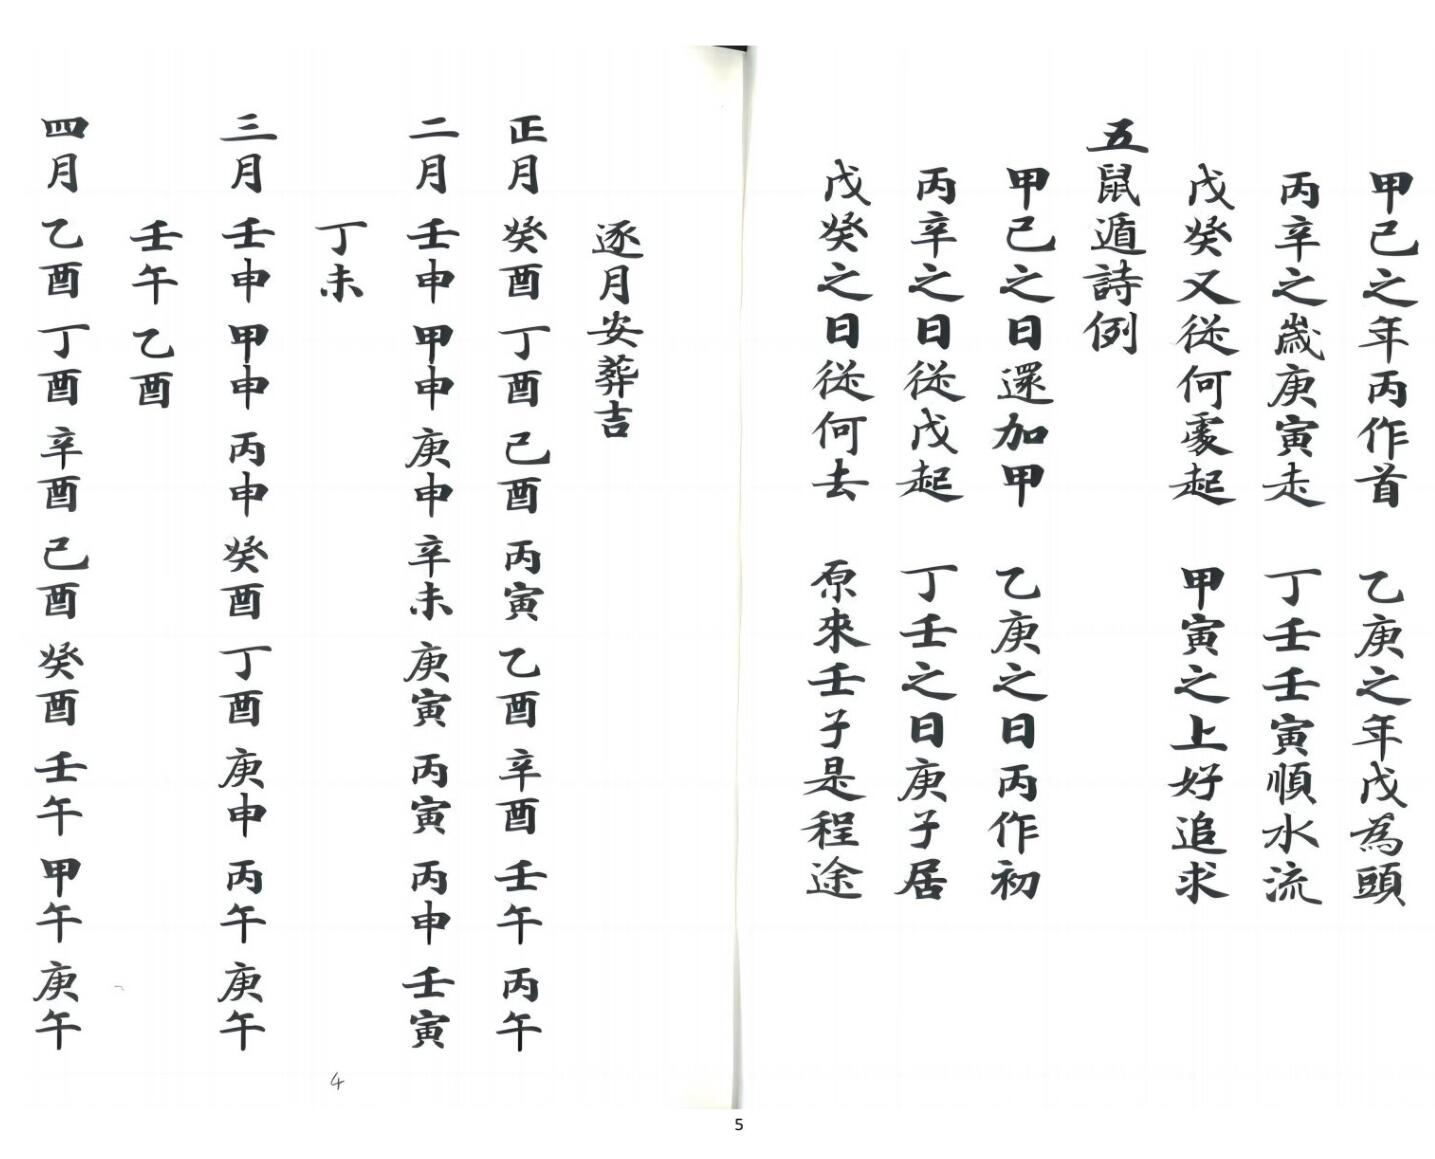 甲己之年丙作首　乙庚之年戊為頭
丙辛之歲庚寅走　丁壬壬寅順水流
戊癸又從何處起　甲寅之上好追求
五鼠遁詩例
甲己之日還加甲　乙庚之日丙作初
丙辛之日從戊起　丁壬之日庚子居
戊癸之日從何去　原來壬子是程途
逐月安葬吉
正月　癸酉　丁酉　己酉　丙寅　乙酉　辛酉　壬午　丙午
二月　壬申　甲申　庚申　辛未　庚寅　丙寅　丙申　壬寅
丁未
三月　壬申　甲申　丙申　癸酉　丁酉　庚申　丙午　庚午
壬午　乙酉
四月　乙酉　丁酉　辛酉　己酉　癸酉　壬午　甲午　庚午
4
5